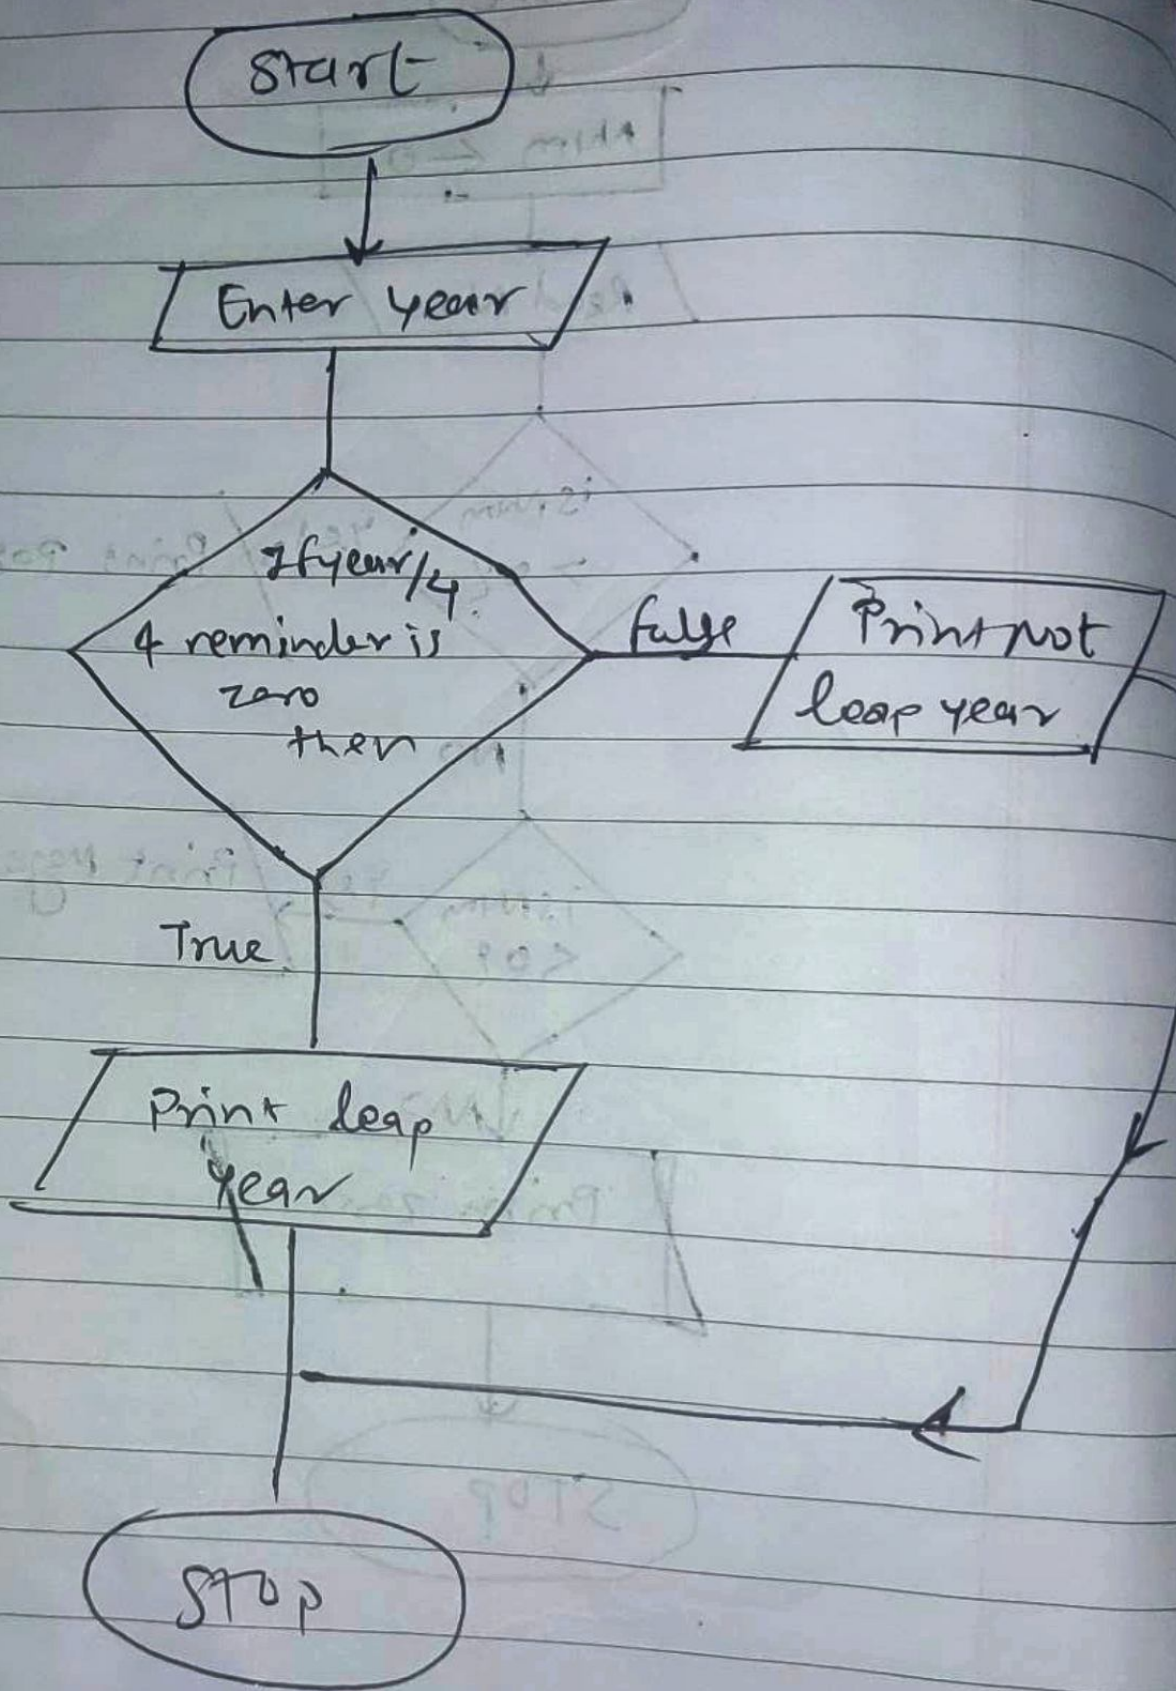 Start
Enter year
If year/4
4 reminder is
zero
then
false
Print Not
leap year
True
Print leap
year
Stop